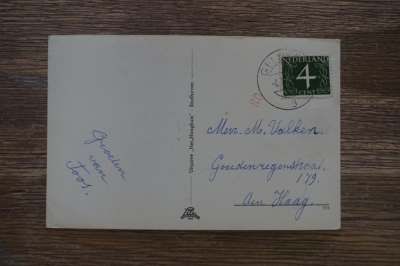 Groeten
van
Toos.
Uitgave "Het Hooghuis" - Eindhoven
NEDERLAND
4
CENT
Mevr. M. Valken.
Goudenregenstraat
179.
Den Haag.